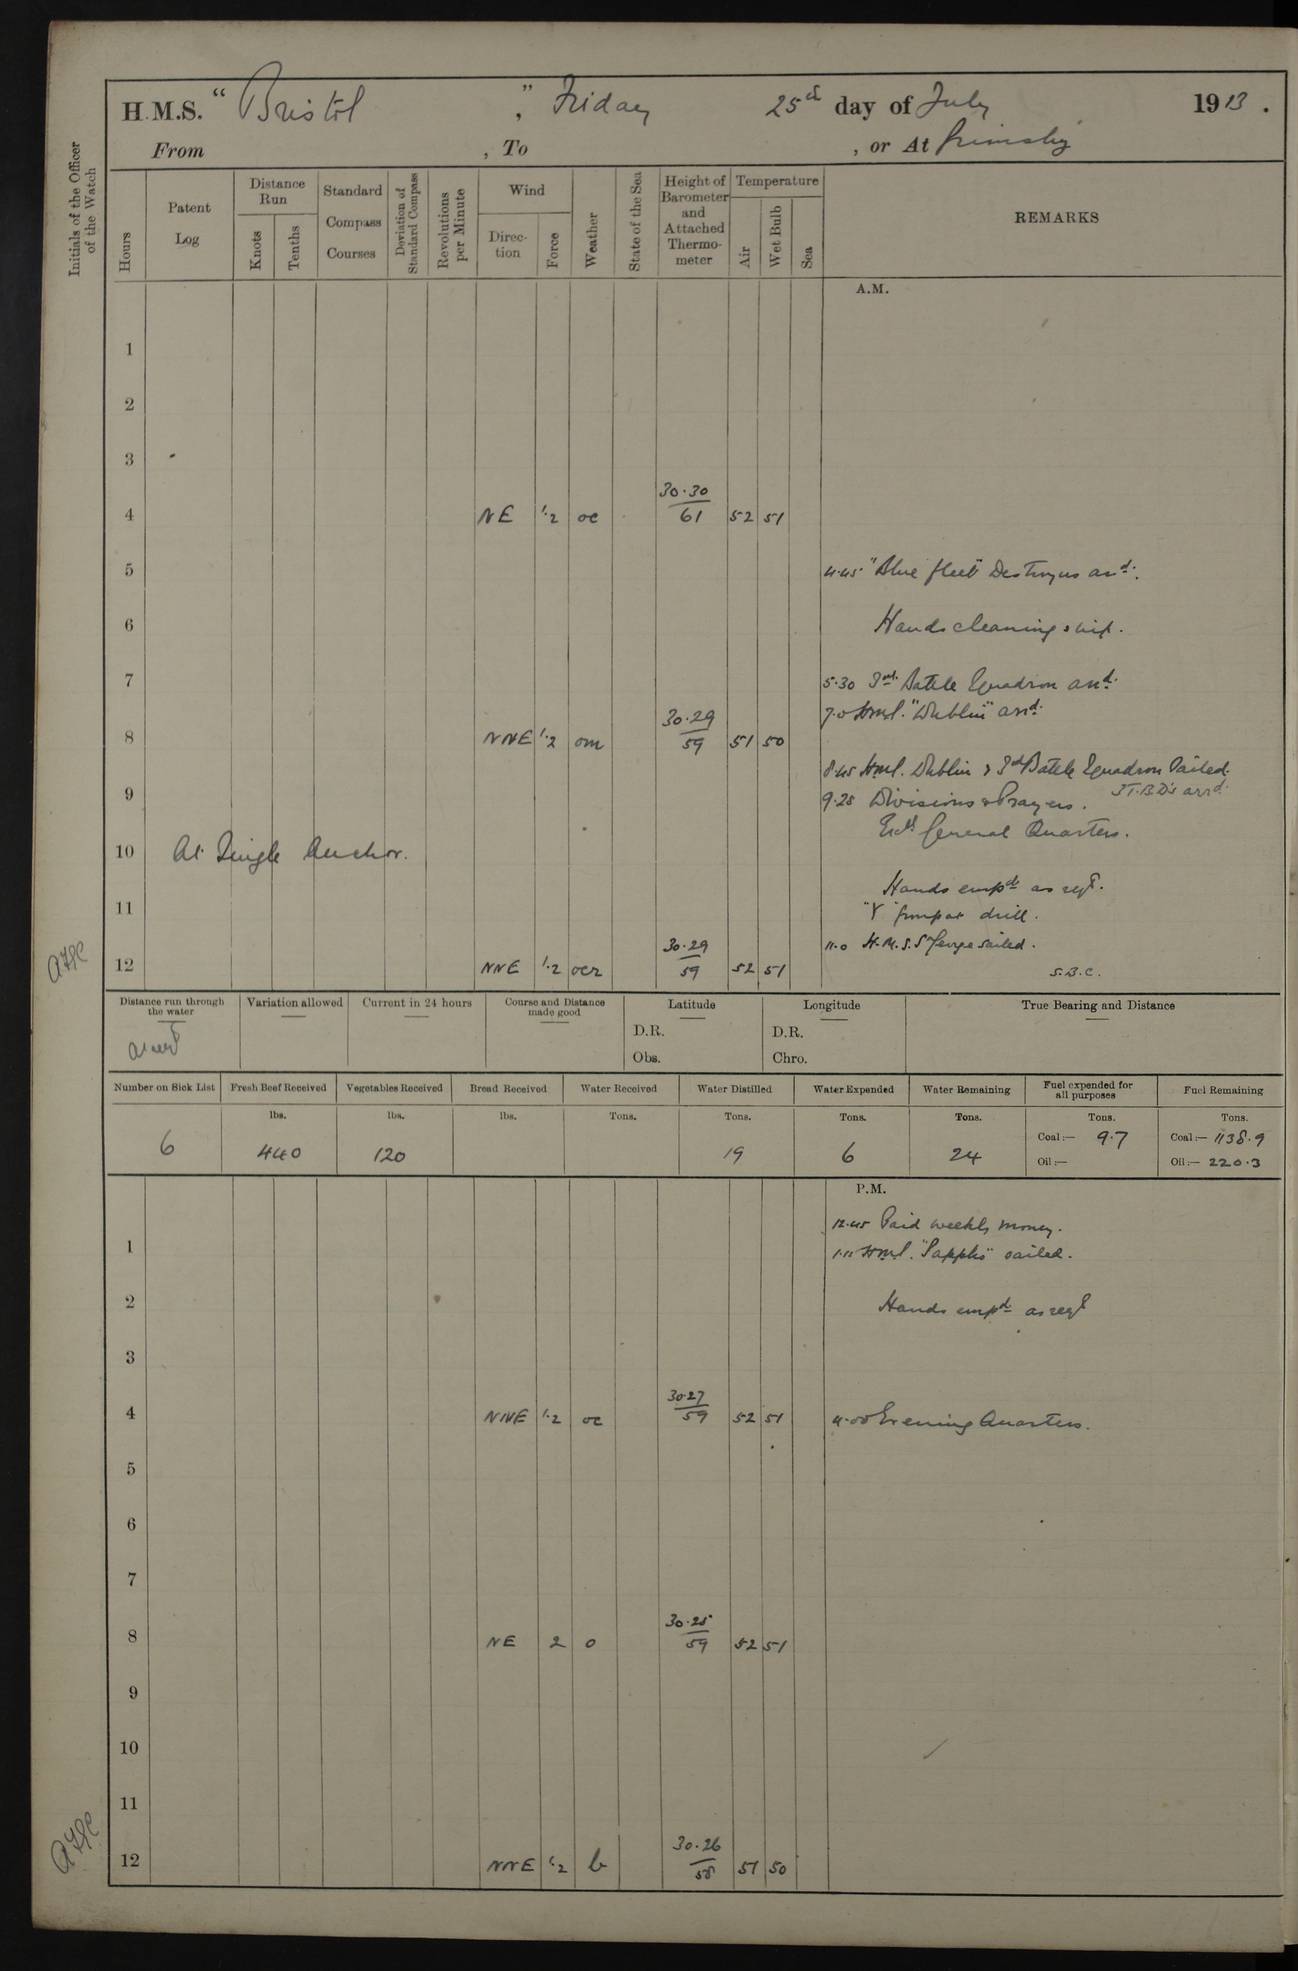 H.M.S. "Bristol", Friday 25th day of July 1913.
From , To , or At Grimsby
Initials of the Officer of the Watch
Hours
Patent Log
Distance Run
Knots
Tenths
Standard Compass Courses
Deviation of Standard Compass
Revolutions per Minute
Wind
Direction
Force
Weather
State of the Sea
Height of Barometer and Attached Thermometer
Temperature
Air
Wet Bulb
Sea
REMARKS
A.M.
1
2
3
4 NE 1.2 oc 30.30/61 52 51
5 4.45 "Blue fleet" Destroyers arrd.
6 Hands cleaning ship.
7 5.30 3rd Battle Squadron arrd.
7.0 H.M.S. "Dublin" arrd.
8 NNE 1.2 om 30.29/59 51 50
8.45 H.M.S. Dublin & 3rd Battle Squadron Sailed.
3 T.B.D's arrd.
9 9.25 Divisions & Prayers.
General Quarters.
10 At Single Anchor.
Hands empd as reqd.
11 "Y" group at drill.
11.0 H.M.S. St George sailed.
12 NNE 1.2 ocr 30.29/59 52 51
S.B.C.
Distance run through the water
Variation allowed
Current in 24 hours
Course and Distance made good
Latitude
D.R.
Obs.
Longitude
D.R.
Chro.
True Bearing and Distance
Number on Sick List
Fresh Beef Received
Vegetables Received
Bread Received
Water Received
Water Distilled
Water Expended
Water Remaining
Fuel expended for all purposes
Fuel Remaining
lbs. lbs. lbs. Tons. Tons. Tons. Tons. Tons. Tons.
6 440 120 19 6 24
Coal:— 9.7 Coal:— 1138.9
Oil:— Oil:— 220.3
P.M.
12.45 Paid weekly money.
1 1.15 H.M.S. "Sappho" sailed.
2 Hands empd as reqd
3
4 NNE 1.2 oc 30.27/59 52 51 4.00 Evening Quarters.
5
6
7
8 NE 2 o 30.25/59 52 51
9
10
11
12 NNE 1.2 b 30.26/58 51 50